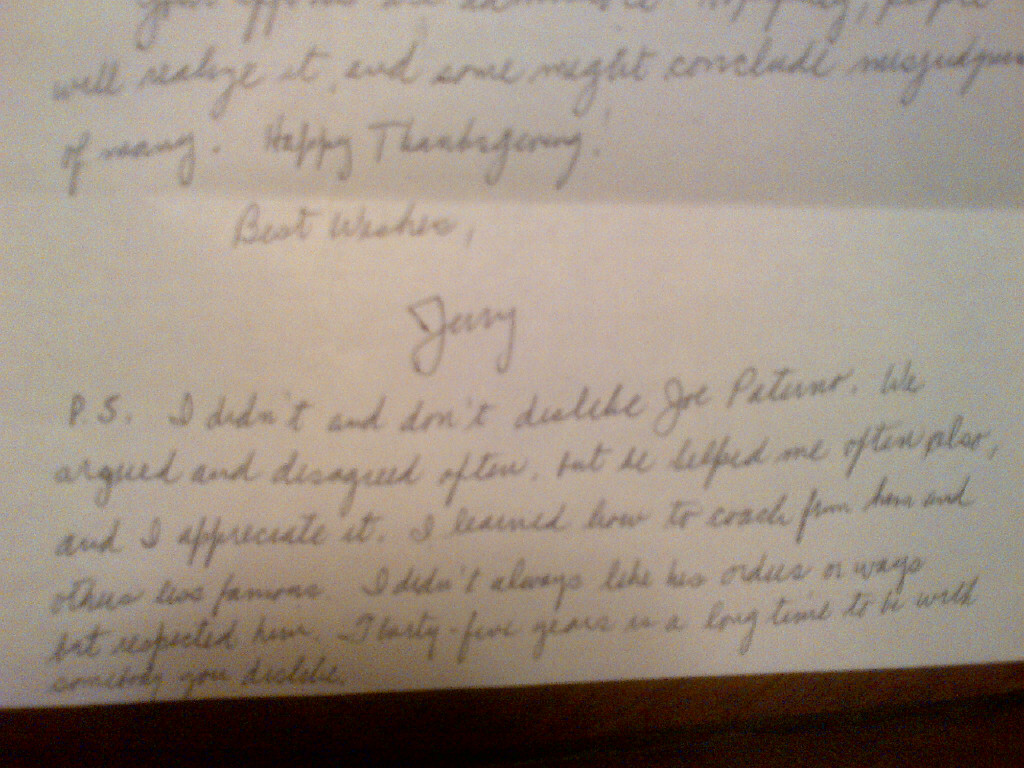 Your efforts are admirable. Hopefully, people
will realize it, and some might conclude
of many. Happy Thanksgiving!
Best Wishes,
Jerry
P.S. I didn't and don't dislike Joe Paterno. We
argued and disagreed often, but he helped me often also,
and I appreciate it. I learned how to coach from him and
others less famous. I didn't always like his orders or ways
but respected him. Thirty-five years is a long time to be with
somebody you dislike.